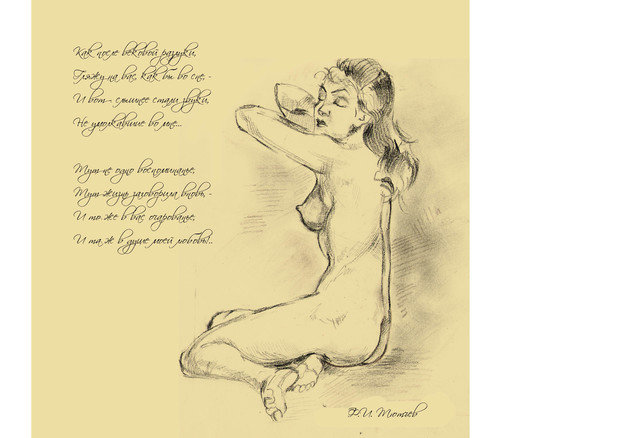 Как после вековой разлуки,
Гляжу на вас, как бы во сне, -
И вот - слышнее стали звуки,
Не умолкавшие во мне...
Тут не одно воспоминанье,
Тут жизнь заговорила вновь, -
И то же в вас очарованье,
И та ж в душе моей любовь!..
Ф.И. Тютчев